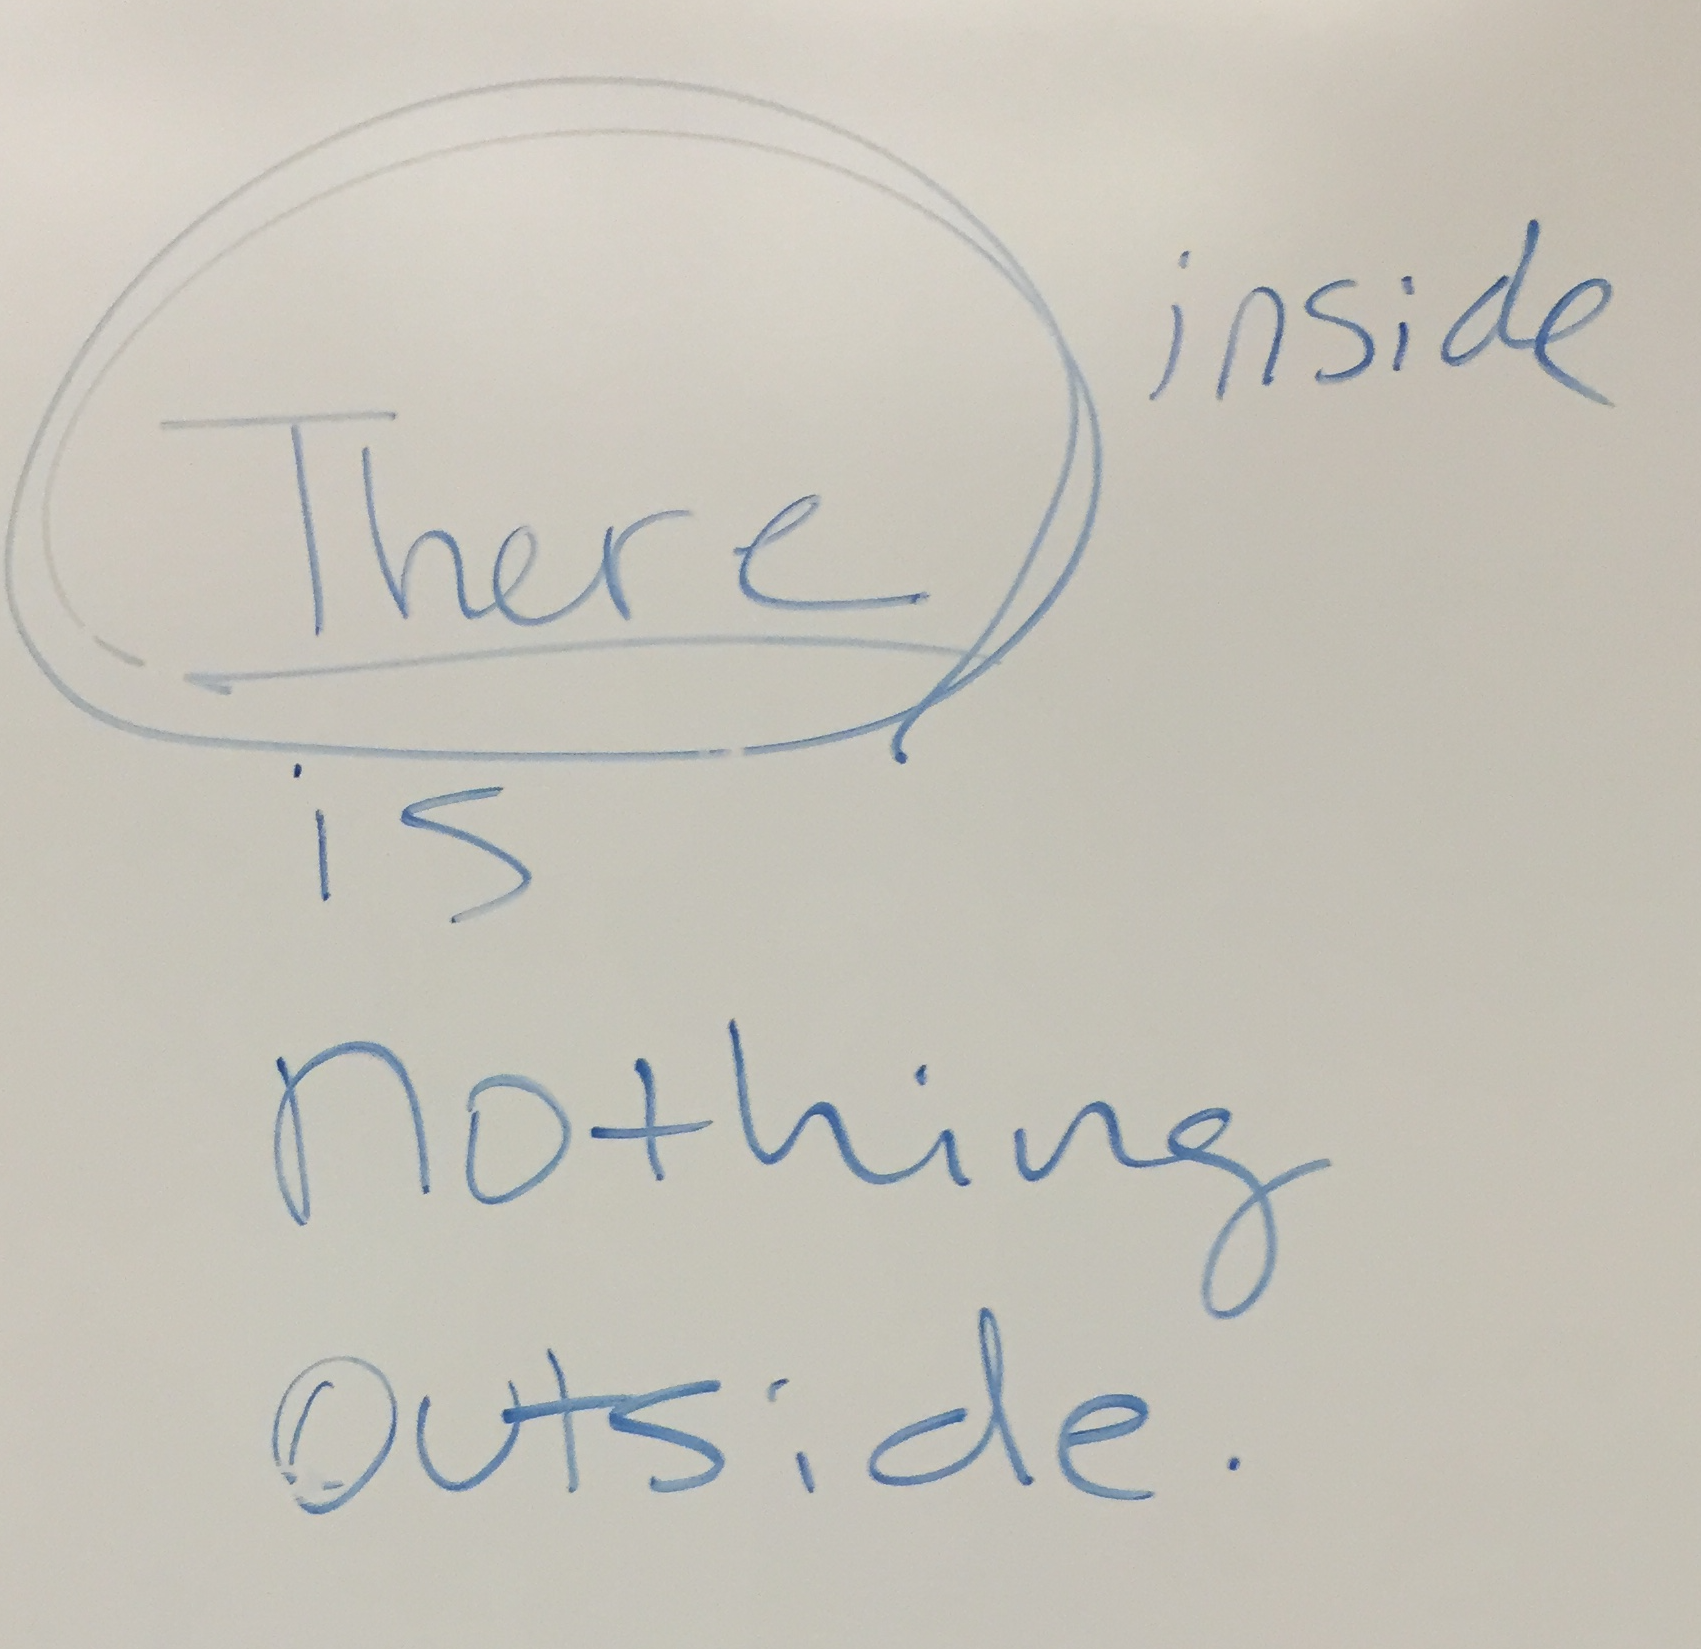 inside
There
is
nothing
outside.